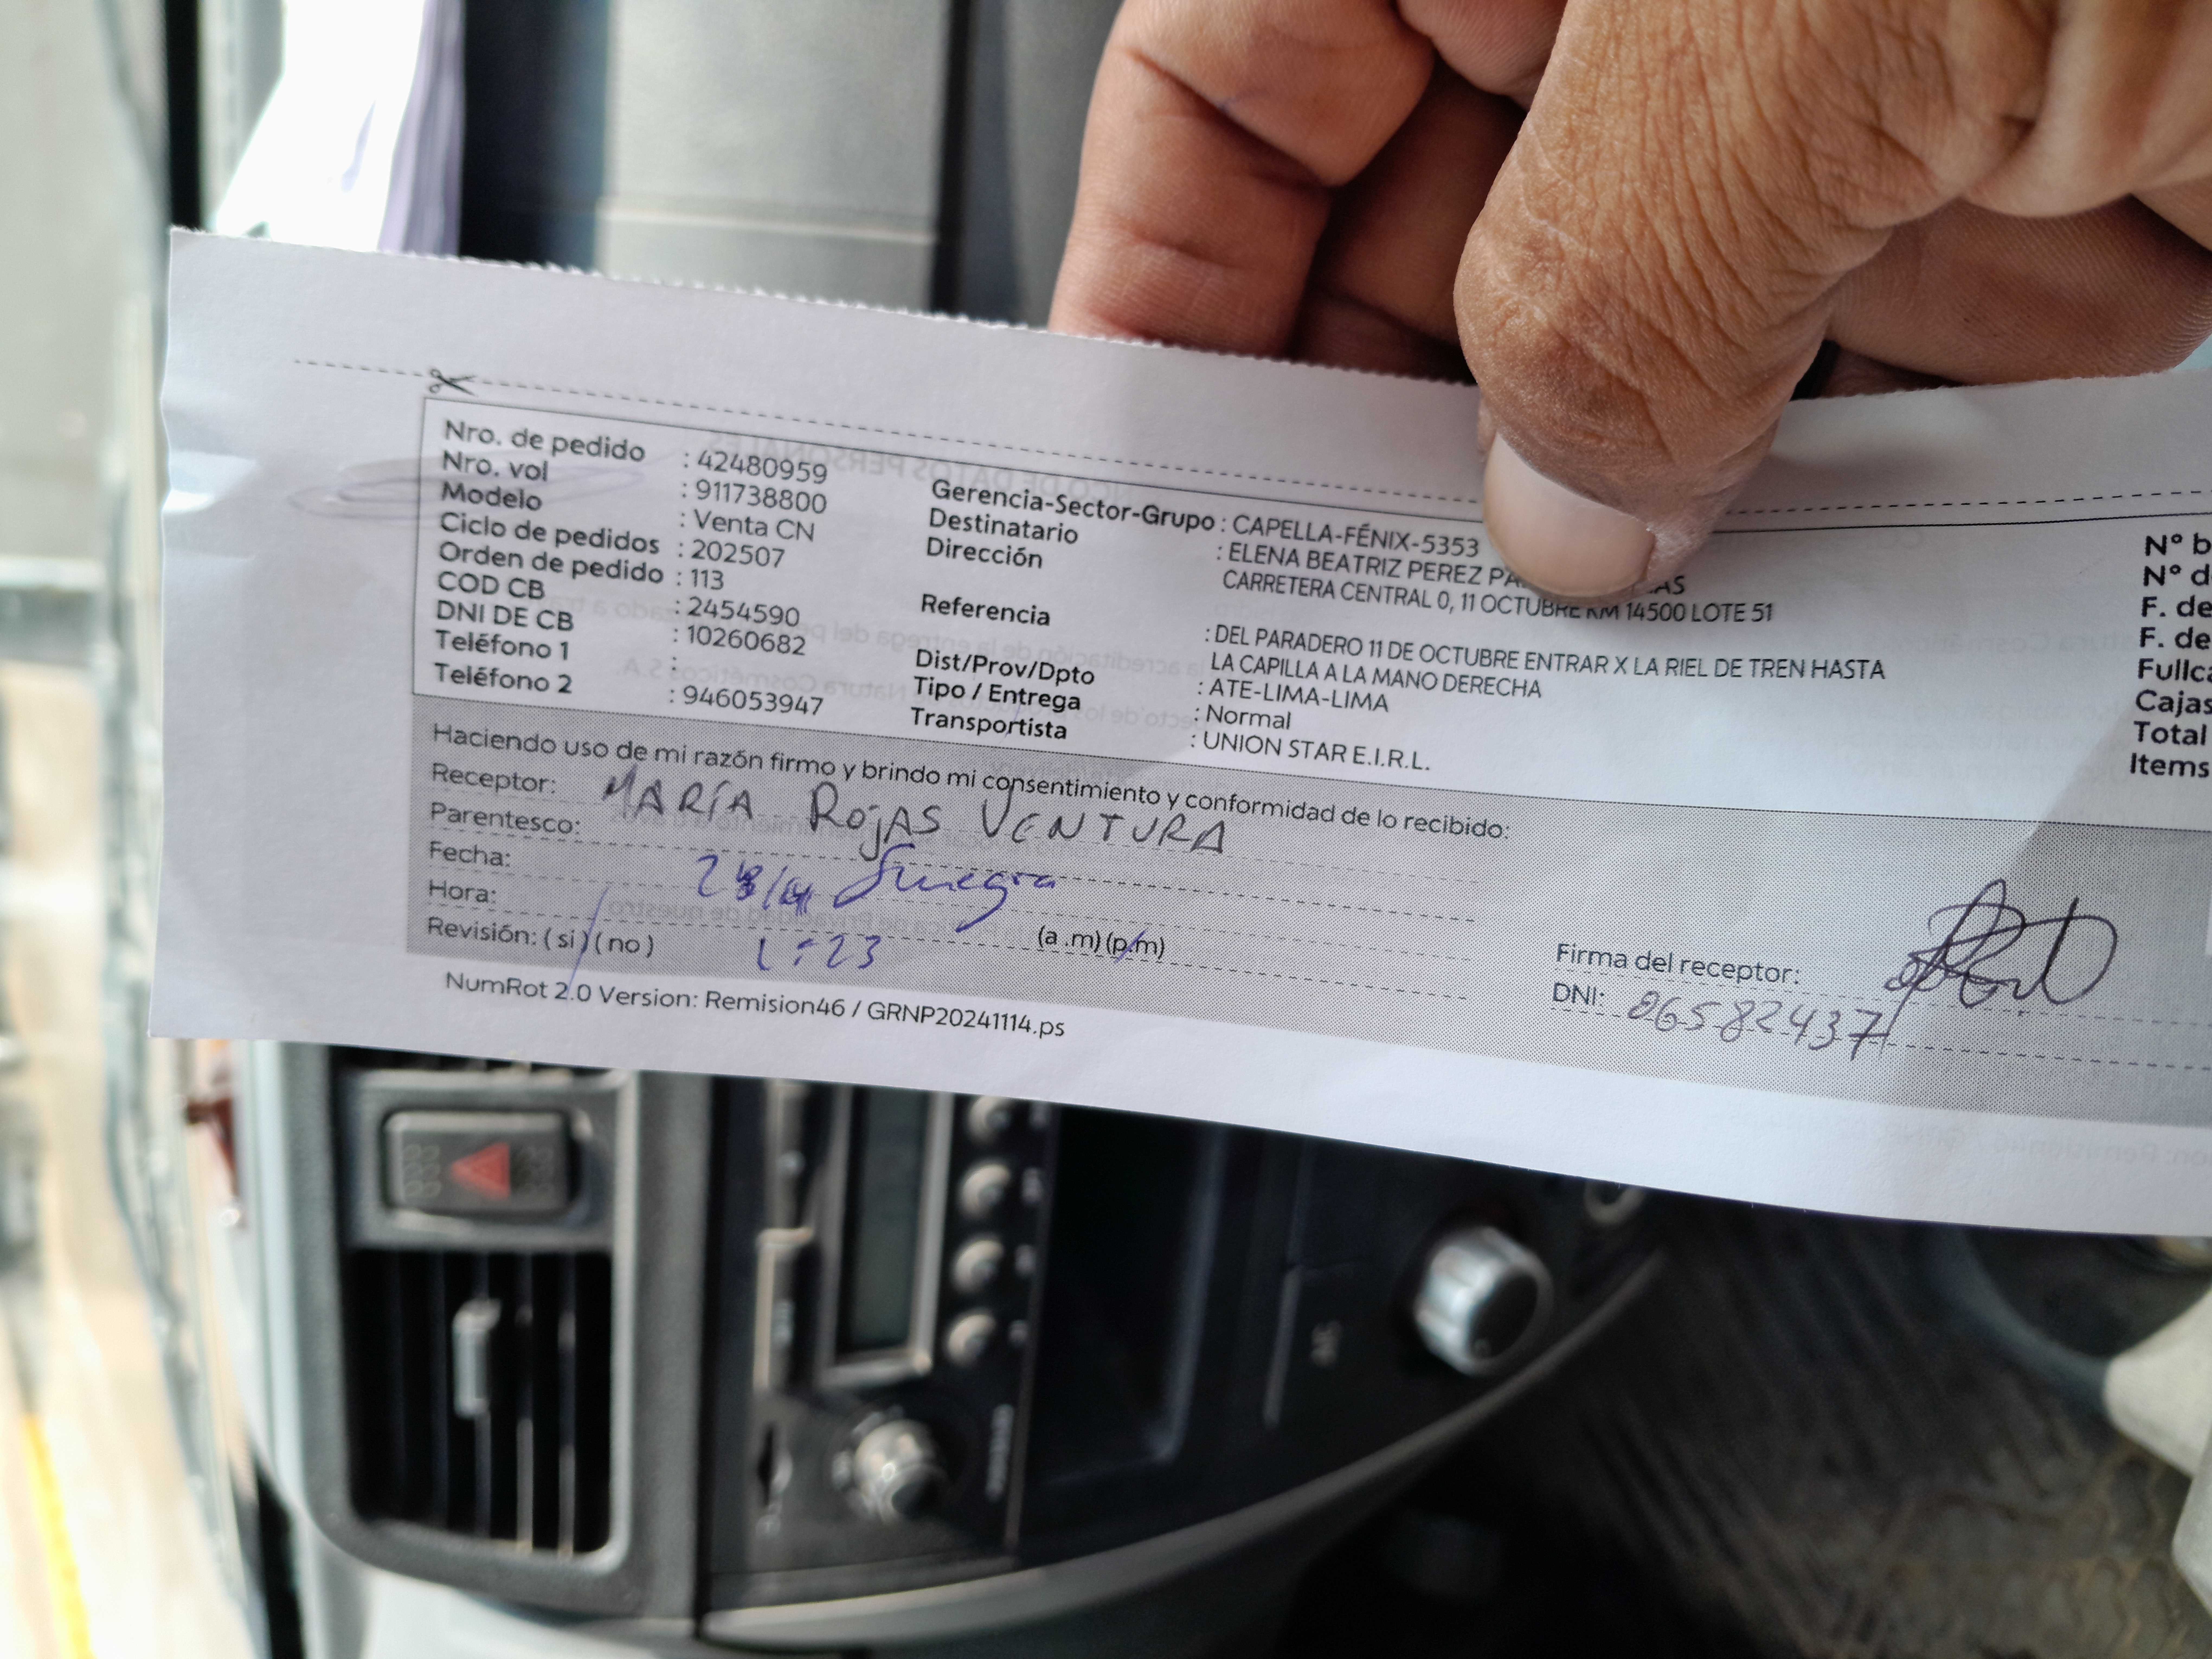 Nro. de pedido : 42480959
Nro. vol : 911738800
Modelo : Venta CN
Ciclo de pedidos : 202507
Orden de pedido : 113
COD CB : 2454590
DNI DE CB : 10260682
Teléfono 1 :
Teléfono 2 : 946053947
Gerencia-Sector-Grupo : CAPELLA-FÉNIX-5353
Destinatario : ELENA BEATRIZ PEREZ
Dirección CARRETERA CENTRAL 0, 11 OCTUBRE KM 14500 LOTE 51
Referencia : DEL PARADERO 11 DE OCTUBRE ENTRAR X LA RIEL DE TREN HASTA
LA CAPILLA A LA MANO DERECHA
Dist/Prov/Dpto : ATE-LIMA-LIMA
Tipo / Entrega : Normal
Transportista : UNION STAR E.I.R.L.
Nº
Nº
F. de
F. de
Cajas
Total
Items
Haciendo uso de mi razón firmo y brindo mi consentimiento y conformidad de lo recibido:
Receptor: MARÍA ROJAS VENTURA
Parentesco: Suegra
Fecha:
Hora: 1:23 (a .m) (p.m)
Revisión: ( si ) ( no )
Firma del receptor:
DNI: 06582437
NumRot 2.0 Version: Remision46 / GRNP20241114.ps